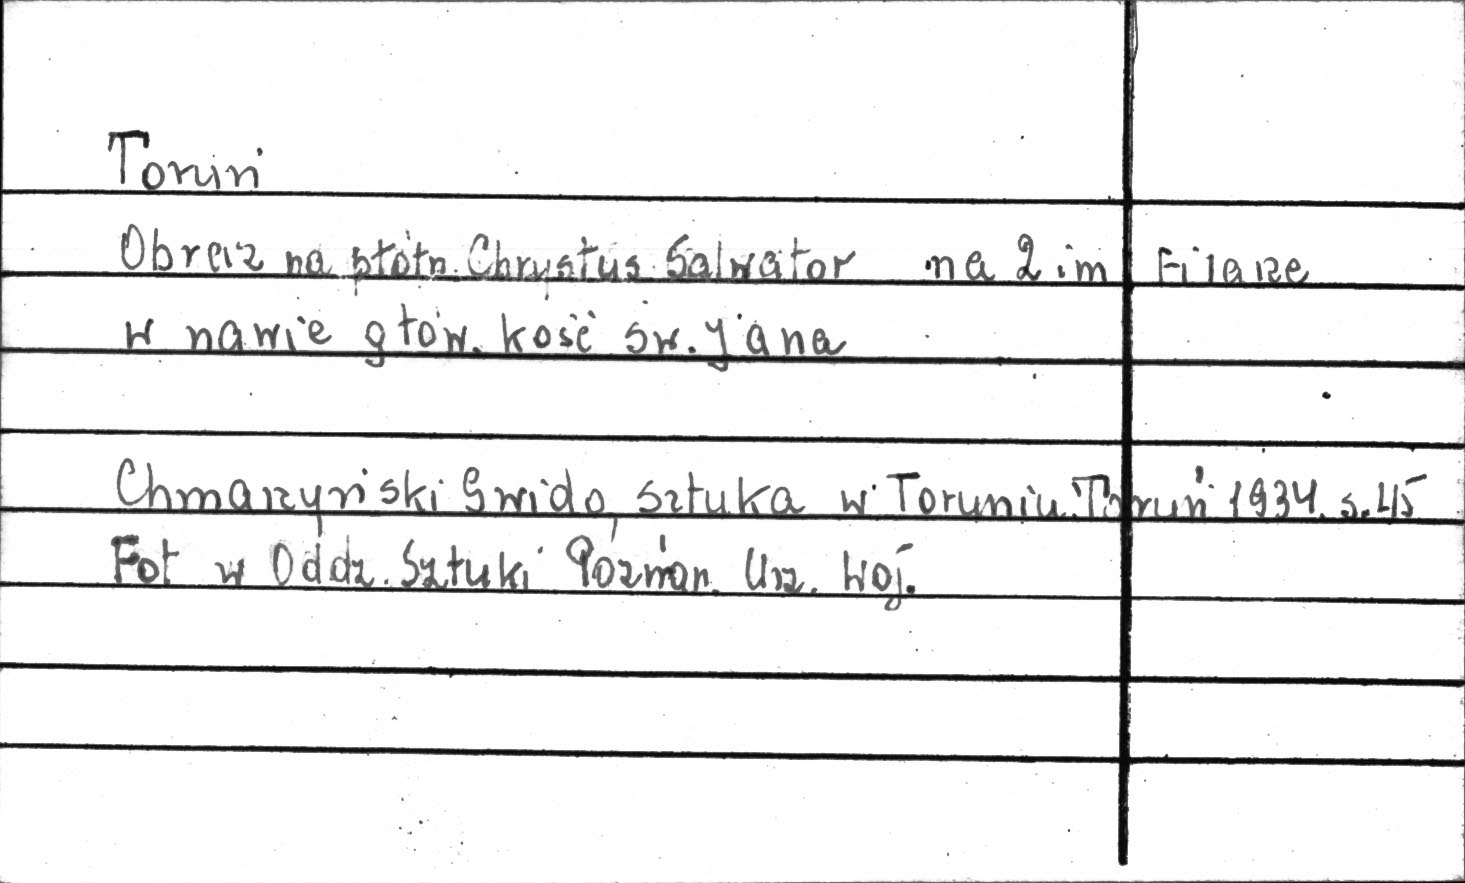 Toruń
Obraz na płótn. Chrystus Salwator na 2 im Filarze
w nawie głów. kość św. Jana
Chmarzyński Gwido, Sztuka w Toruniu. Toruń 1934. s. 45
Fot w Oddz. Sztuki Poznań. Urz. Woj.